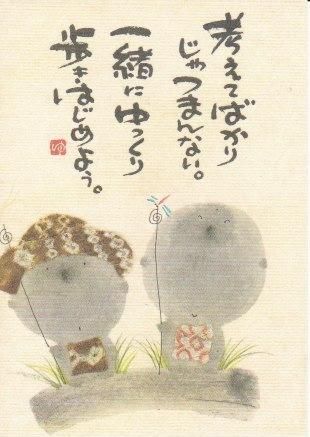 考えてばかり
じゃつまんない。
一緒にゆっくり
歩きはじめよう。
ゆ